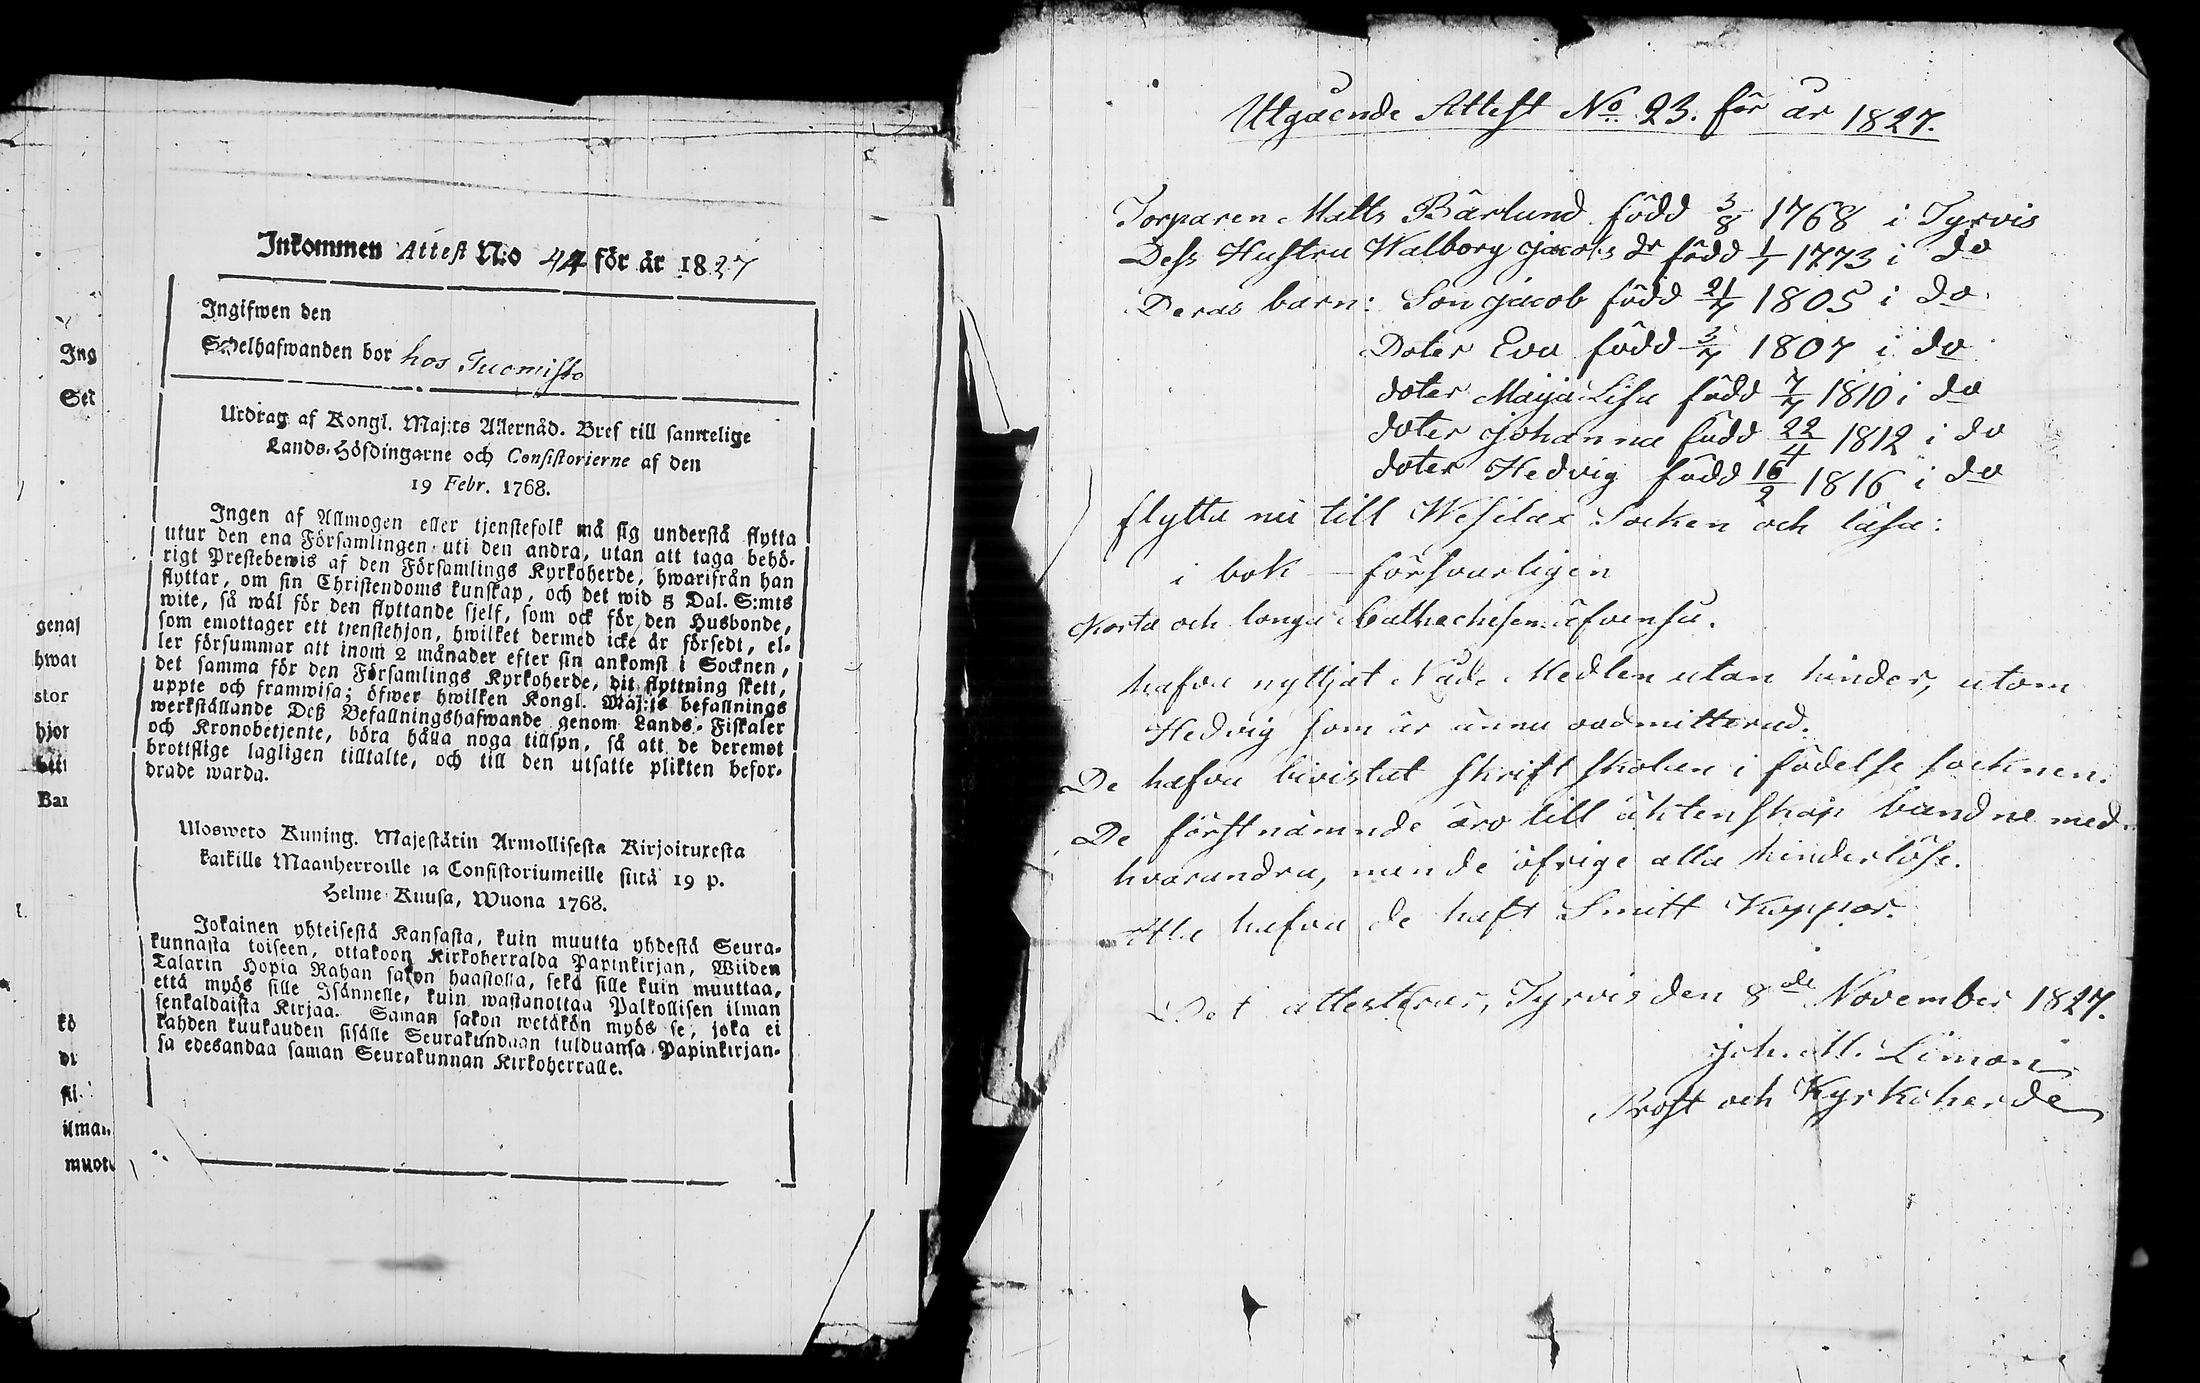 Inkommen Attest N:o 44 för år 1827
Ingifwen den
Sedelhafwanden bor hos Tuomisto
Utdrag af Kongl. Maj:ts Allernåd. Bref till samtelige
Lands-Höfdingarne och Consistorierne af den
19 Febr. 1768.
Ingen af Allmogen eller tjenstefolk må sig understå flytta
utur den ena Församlingen uti den andra, utan att taga behö-
rigt Prestebewis af den Församlings Kyrkoherde, hwarifrån han
flyttar, om sin Christendoms kunskap, och det wid 5 Dal. S:mts
wite, så wäl för den flyttande sjelf, som ock för den Husbonde,
som emottager ett tjenstehjon, hwilket dermed icke är försedt, el-
ler försummar att inom 2 månader efter sin ankomst i Socknen,
det samma för den Församlings Kyrkoherde, dit flyttning skett,
uppte och framwisa; öfwer hwilken Kongl. Maj:ts befallnings
werkställande Deß Befallningshafwande genom Lands-Fiskaler
och Kronobetjente, böra hålla noga tillsyn, så att de deremot
brottslige lagligen tilltalte, och till den utsatte plikten befor-
drade warda.
Ulosweto Kuning. Majestätin Armollisesta Kirjoituxesta
kaikille Maanherroille ja Consistoriumeille siitä 19 p.
Helme-Kuusa, Wuona 1768.
Jokainen yhteisestä Kansasta, kuin muutta yhdestä Seura-
kunnasta toiseen, ottakoon Kirkoherralda Papinkirjan, Wiiden
Talarin Hopia Rahan sakon haastolla, sekä sille kuin muuttaa,
että myös sille Isännelle, kuin wastanottaa Palkollisen ilman
senkaldaista Kirjaa. Saman sakon wetäkön myös se, joka ei
kahden kuukauden sisälle Seurakundaan tulduansa Papinkirjan-
sa edesandaa saman Seurakunnan Kirkoherralle.
Ing
Sed
genas
hwar
stor
hjor
Bar
kö
di
ilman
muot
Utgående Attest No. 23. för år 1827.
Torparen Matts Bärlund född 3/8 1768 i Tyrvis
Dess Hustru Walborg Jacobs dr född 1/1 1773 i do
Deras barn: Son Jacob född 21/7 1805 i do
Doter Eva född 3/7 1807 i do
doter Maija Lisa född 7/7 1810 i do
doter Johanna född 22/4 1812 i do
doter Hedvig född 16/2 1816 i do
flytta nu till Wesilax Socken och läsa:
i bok — försvarligen
Korta och longa Cathechesen äfvenså.
hafva nyttjat Nåde Medlen utan hinder, utom
Hedvig som är ännu oadmitterad.
De hafva bivistat skriftskolan i födelse socknen.
De förstnämnde äro till äktenskap bundne med
hvarandra, men de öfrige alla hinderlöse.
Alla hafva de haft Smitt Koppor.
Det attesterar, Tyrvis den 8de November 1827.
Joh. M. Limon
Prost och Kyrkoherde